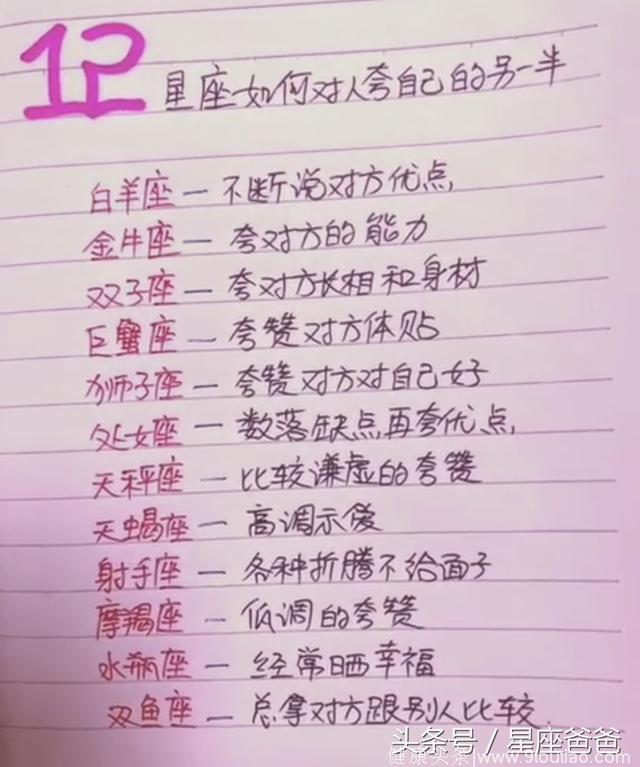 12星座如何对人夸自己的另一半
白羊座—不断说对方优点
金牛座—夸对方的能力
双子座—夸对方长相和身材
巨蟹座—夸赞对方体贴
狮子座—夸赞对方对自己好
处女座—数落缺点再夸优点
天秤座—比较谦虚的夸赞
天蝎座—高调示爱
射手座—各种折腾不给面子
摩羯座—低调的夸赞
水瓶座—经常晒幸福
双鱼座—总拿对方跟别人比较
头条号 / 星座爸爸
健康头条 www.91outiao.com